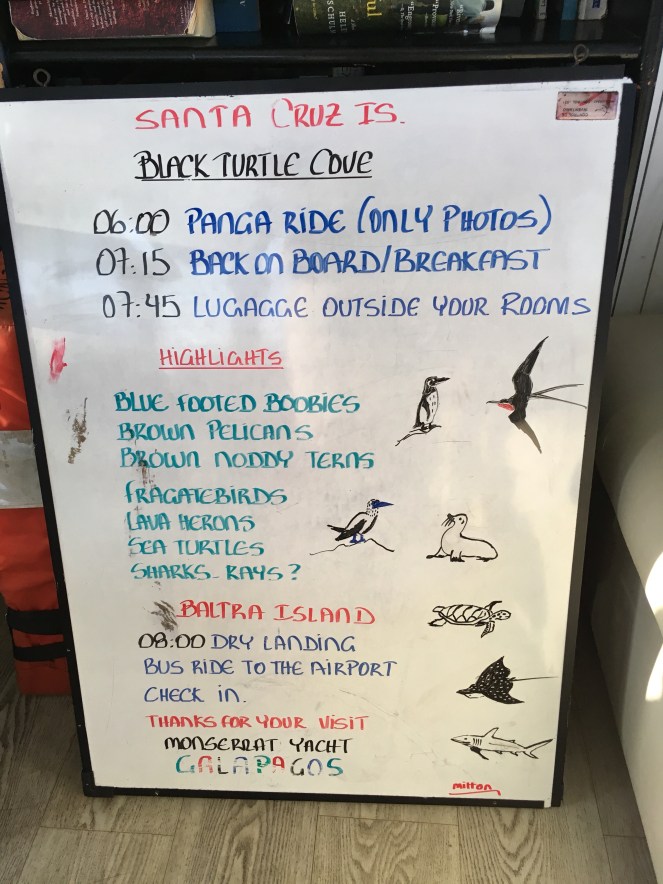 SANTA CRUZ IS.
BLACK TURTLE COVE
06:00 PANGA RIDE (ONLY PHOTOS)
07:15 BACK ON BOARD/BREAKFAST
07:45 LUGAGGE OUTSIDE YOUR ROOMS
HIGHLIGHTS
BLUE FOOTED BOOBIES
BROWN PELICANS
BROWN NODDY TERNS
FRAGATEBIRDS
LAVA HERONS
SEA TURTLES
SHARKS - RAYS?
BALTRA ISLAND
08:00 DRY LANDING
BUS RIDE TO THE AIRPORT
CHECK IN.
THANKS FOR YOUR VISIT
MONSERRAT YACHT
GALAPAGOS
milton